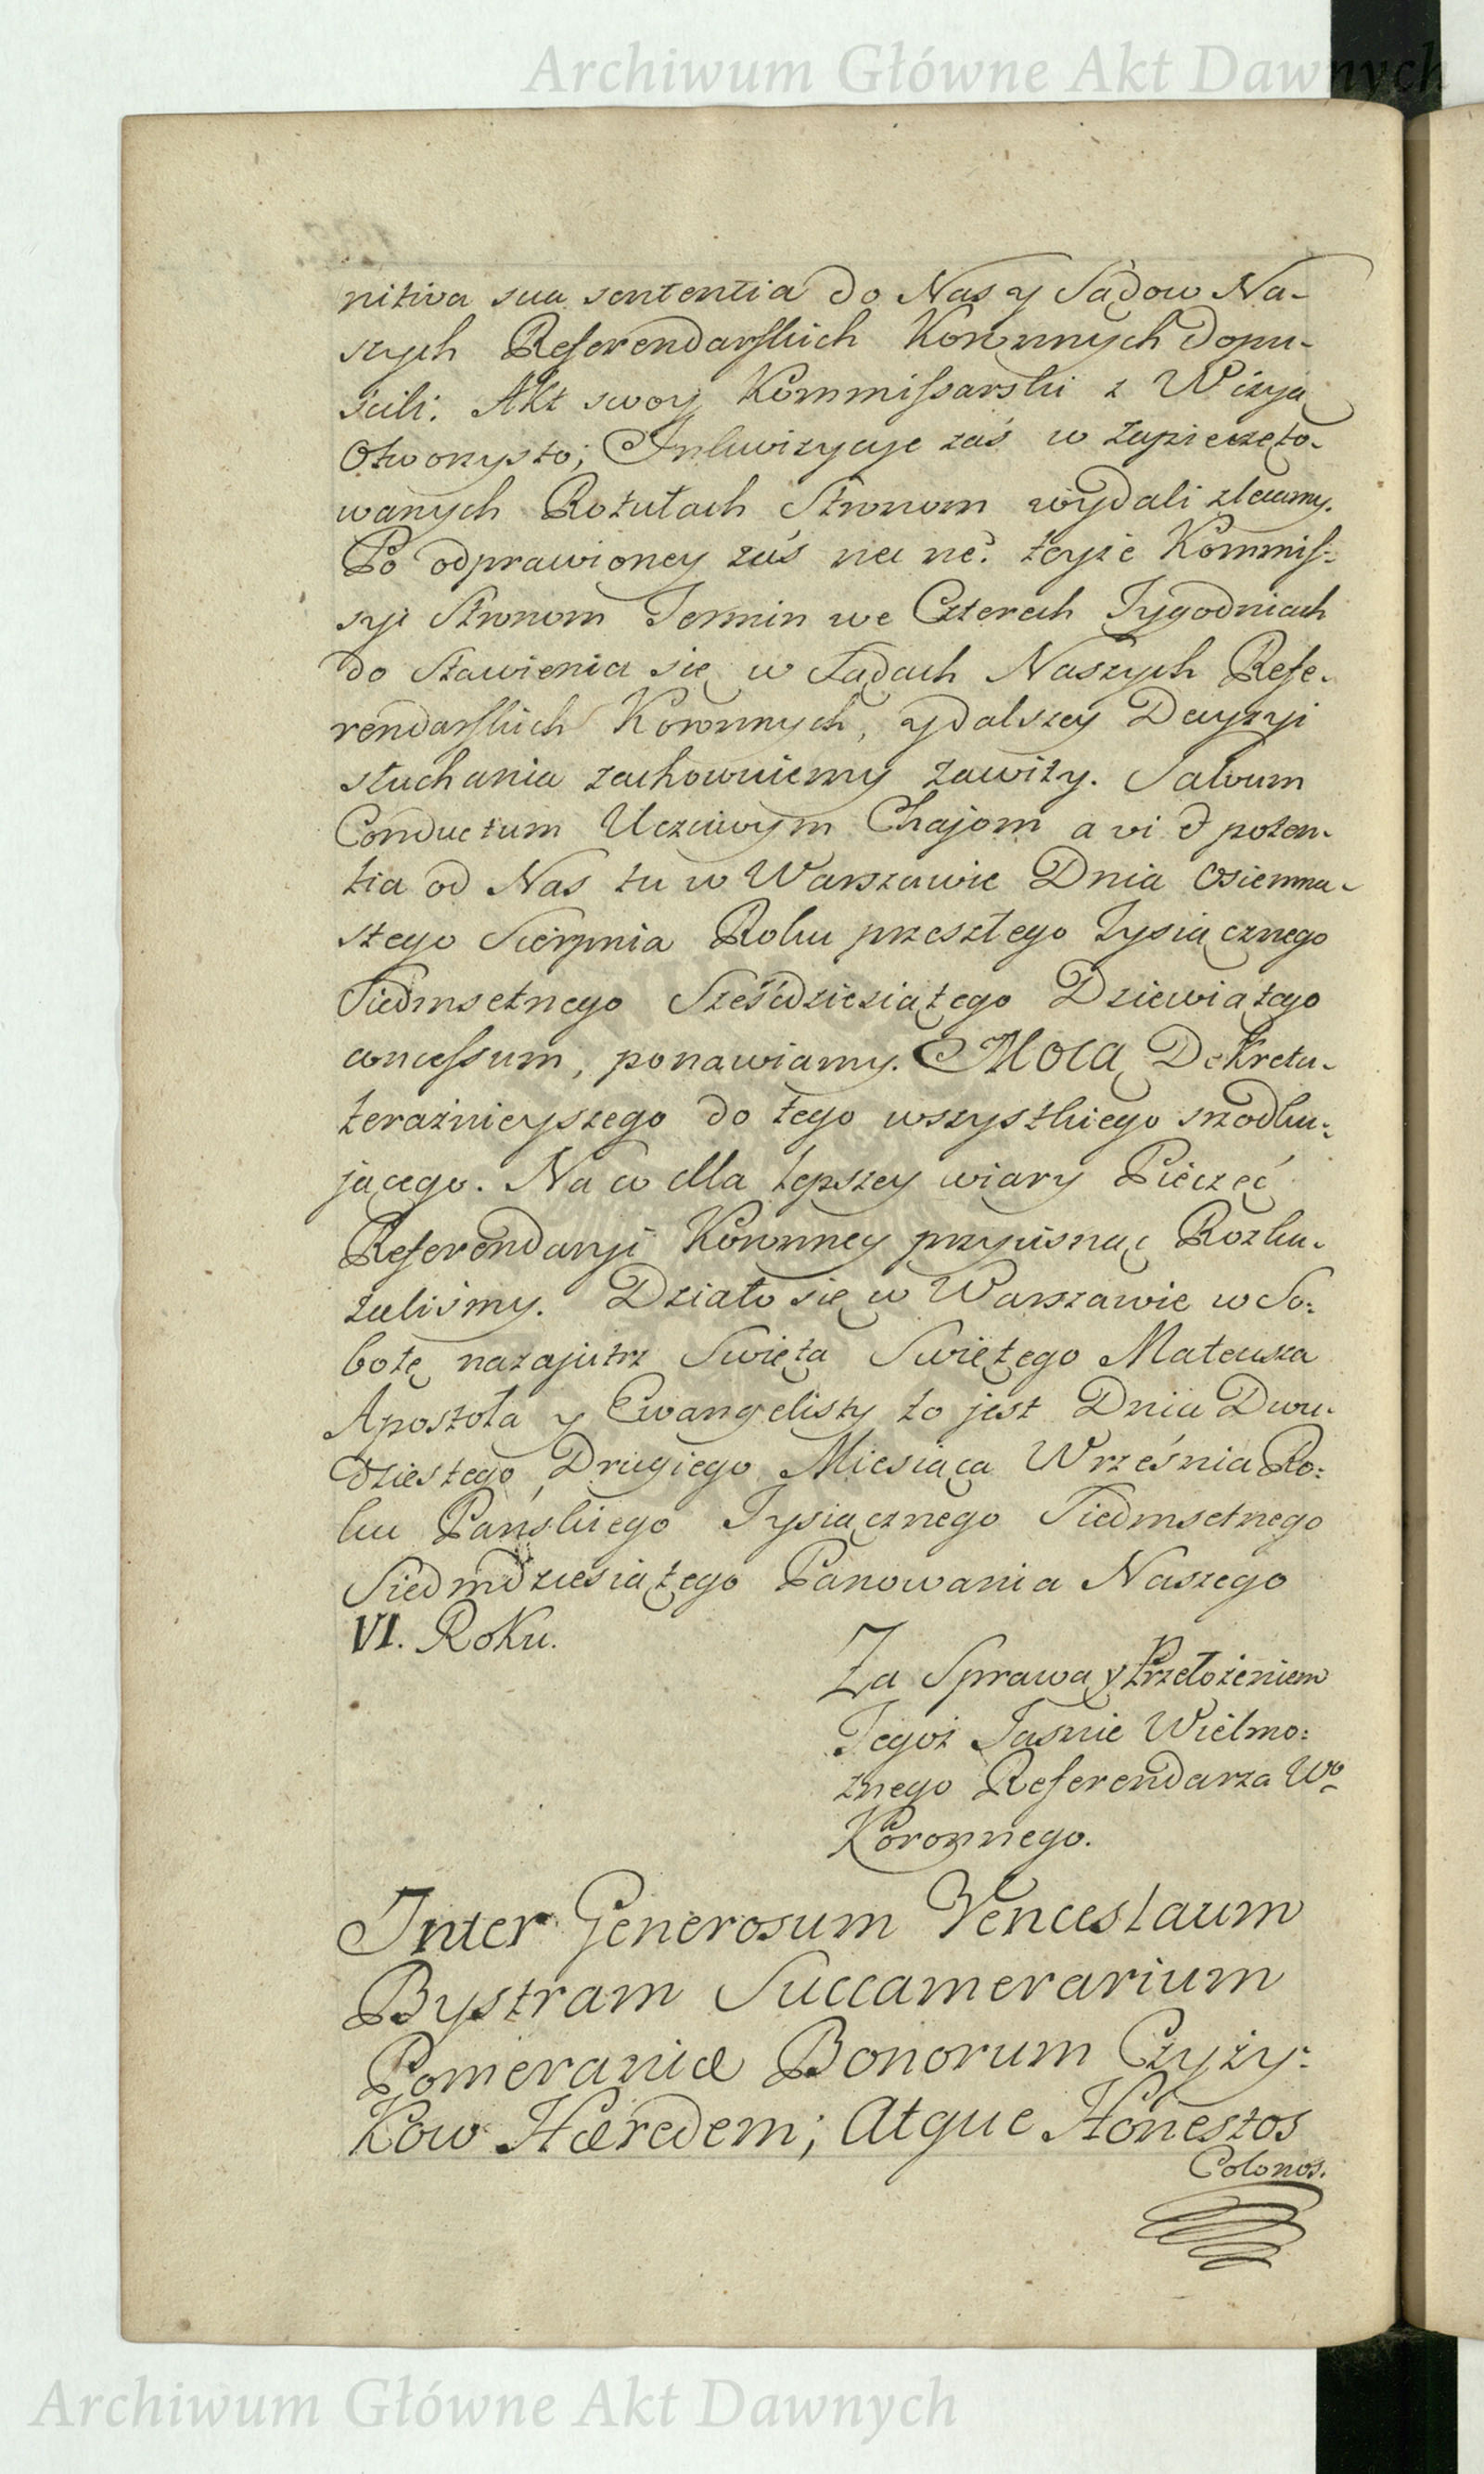 Archiwum Główne Akt Dawnych
nitiva sua sententia do Nas y Sądow Na-
szych Referendarskich Koronnych dopu-
ścili. Akt swoy Kommissarski z Wizyą
Otworzysto; Inkwizycye zaś w zapieczęto-
wanych Rotułach Stronom wydali zlecamy.
Po odprawioney zaś na ne. teyże Kommis-
syi Stronom Termin we Czterech Tygodniach
do Stawienia się w Sądach Naszych Refe-
rendarskich Koronnych, y dalszey Decyzyi
słuchania zachowuiemy zawity. Salvum
Conductum Uczciwym Chajom a vi & poten-
tia od Nas tu w Warszawie Dnia Osiemna-
stego Sierpnia Roku przeszłego Tysiącznego
Siedmsetnego Sześćdziesiątego Dziewiątego
concessum, ponawiamy. Mocą Dekretu
teraźnieyszego do tego wszystkiego srzodku-
jącego. Na co dla lepszey wiary Pieczęć
Referendaryi Koronney przycisnąć Rozka-
zaliśmy. Działo się w Warszawie w So-
botę nazajutrz Swięta Swiętego Mateusza
Apostoła y Ewangelisty to jest Dnia Dwu-
dziestego Drugiego Miesiąca Września Ro-
ku Pańskiego Tysiącznego Siedmsetnego
Siedmdziesiątego Panowania Naszego
VI. Roku.
Za Sprawą y Przełożeniem
Tegoż Jasnie Wielmo-
żnego Referendarza Wo
Koronnego.
Inter Generosum Venceslaum
Bystram Succamerarium
Pomeraniæ Bonorum Czyży-
Kow Hæredem; Atque Honestos
Colonos.
Archiwum Główne Akt Dawnych